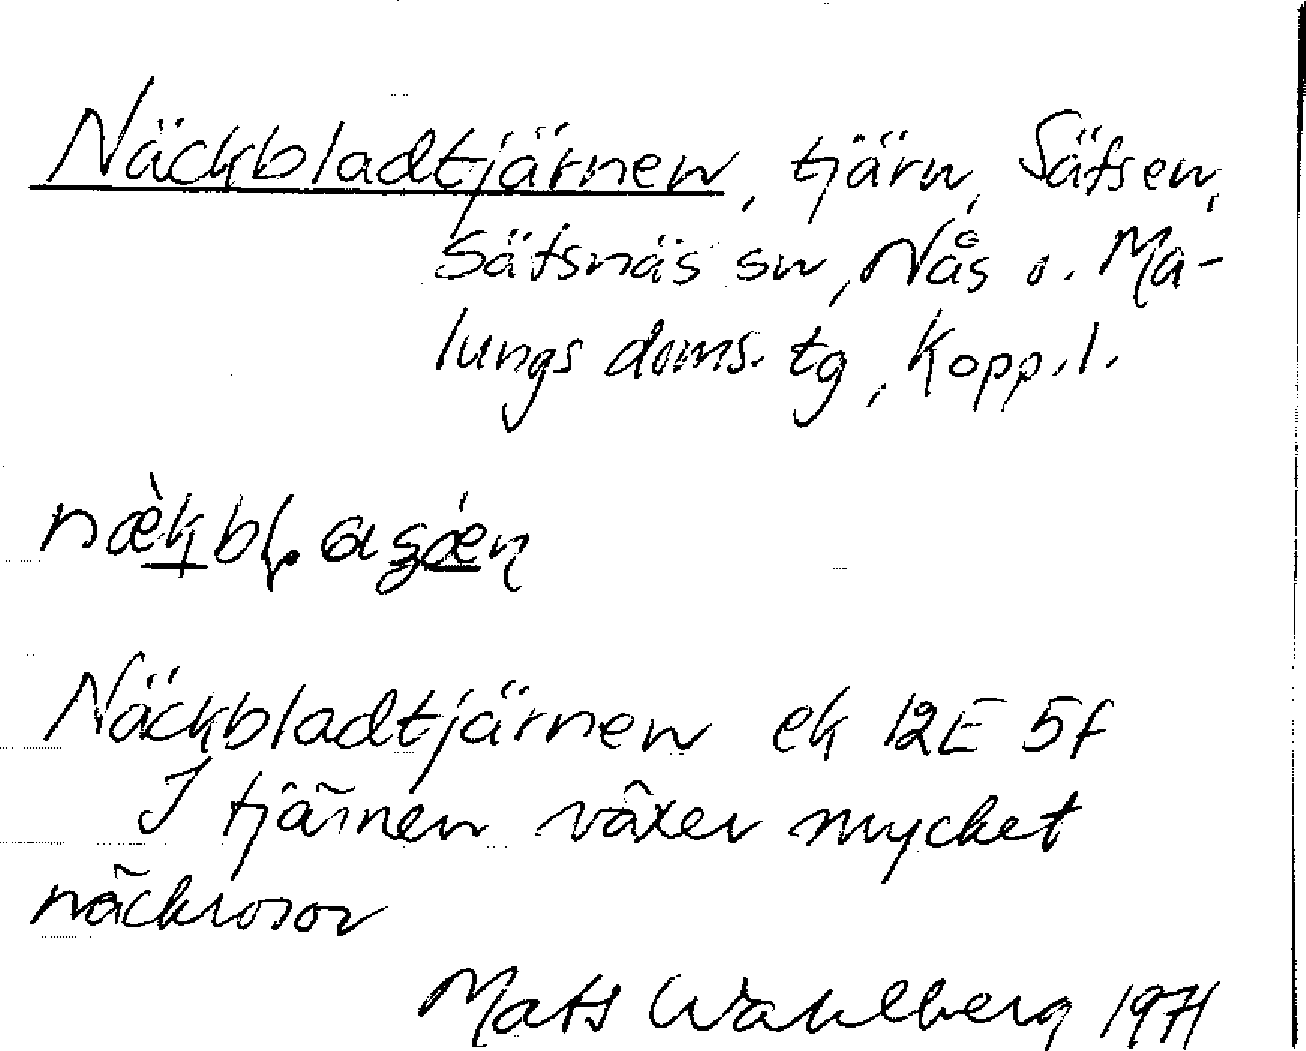 Näckbladtjärnen, tjärn, Sätsen,
Sätsnäs sn, Nås o. Ma-
lungs doms. tg, Kopp. l.
Näckbladtjärnen ek 12E 5f
I tjärnen växer mycket
näckrosor
Mats Wahlberg 1971